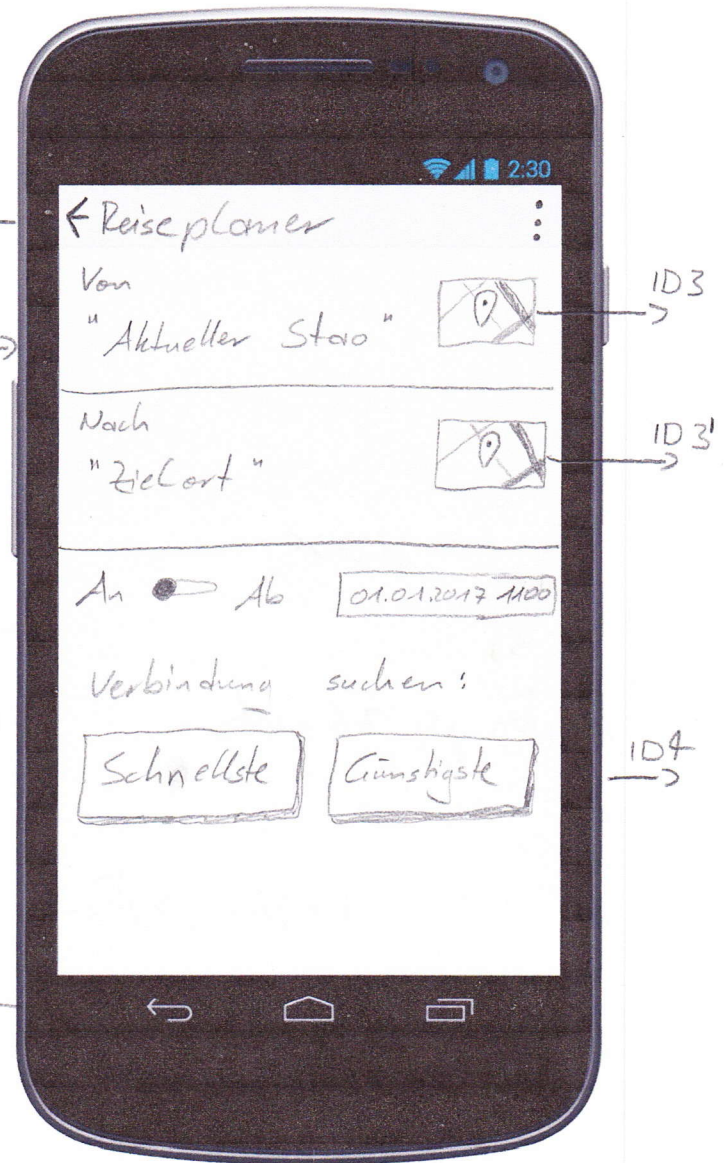 2:30
Reiseplaner
Von
ID3
"Aktueller Stao"
Nach
ID3'
"Zielort"
An Ab 01.01.2017 1100
Verbindung suchen:
Schnellste Günstigste
ID4